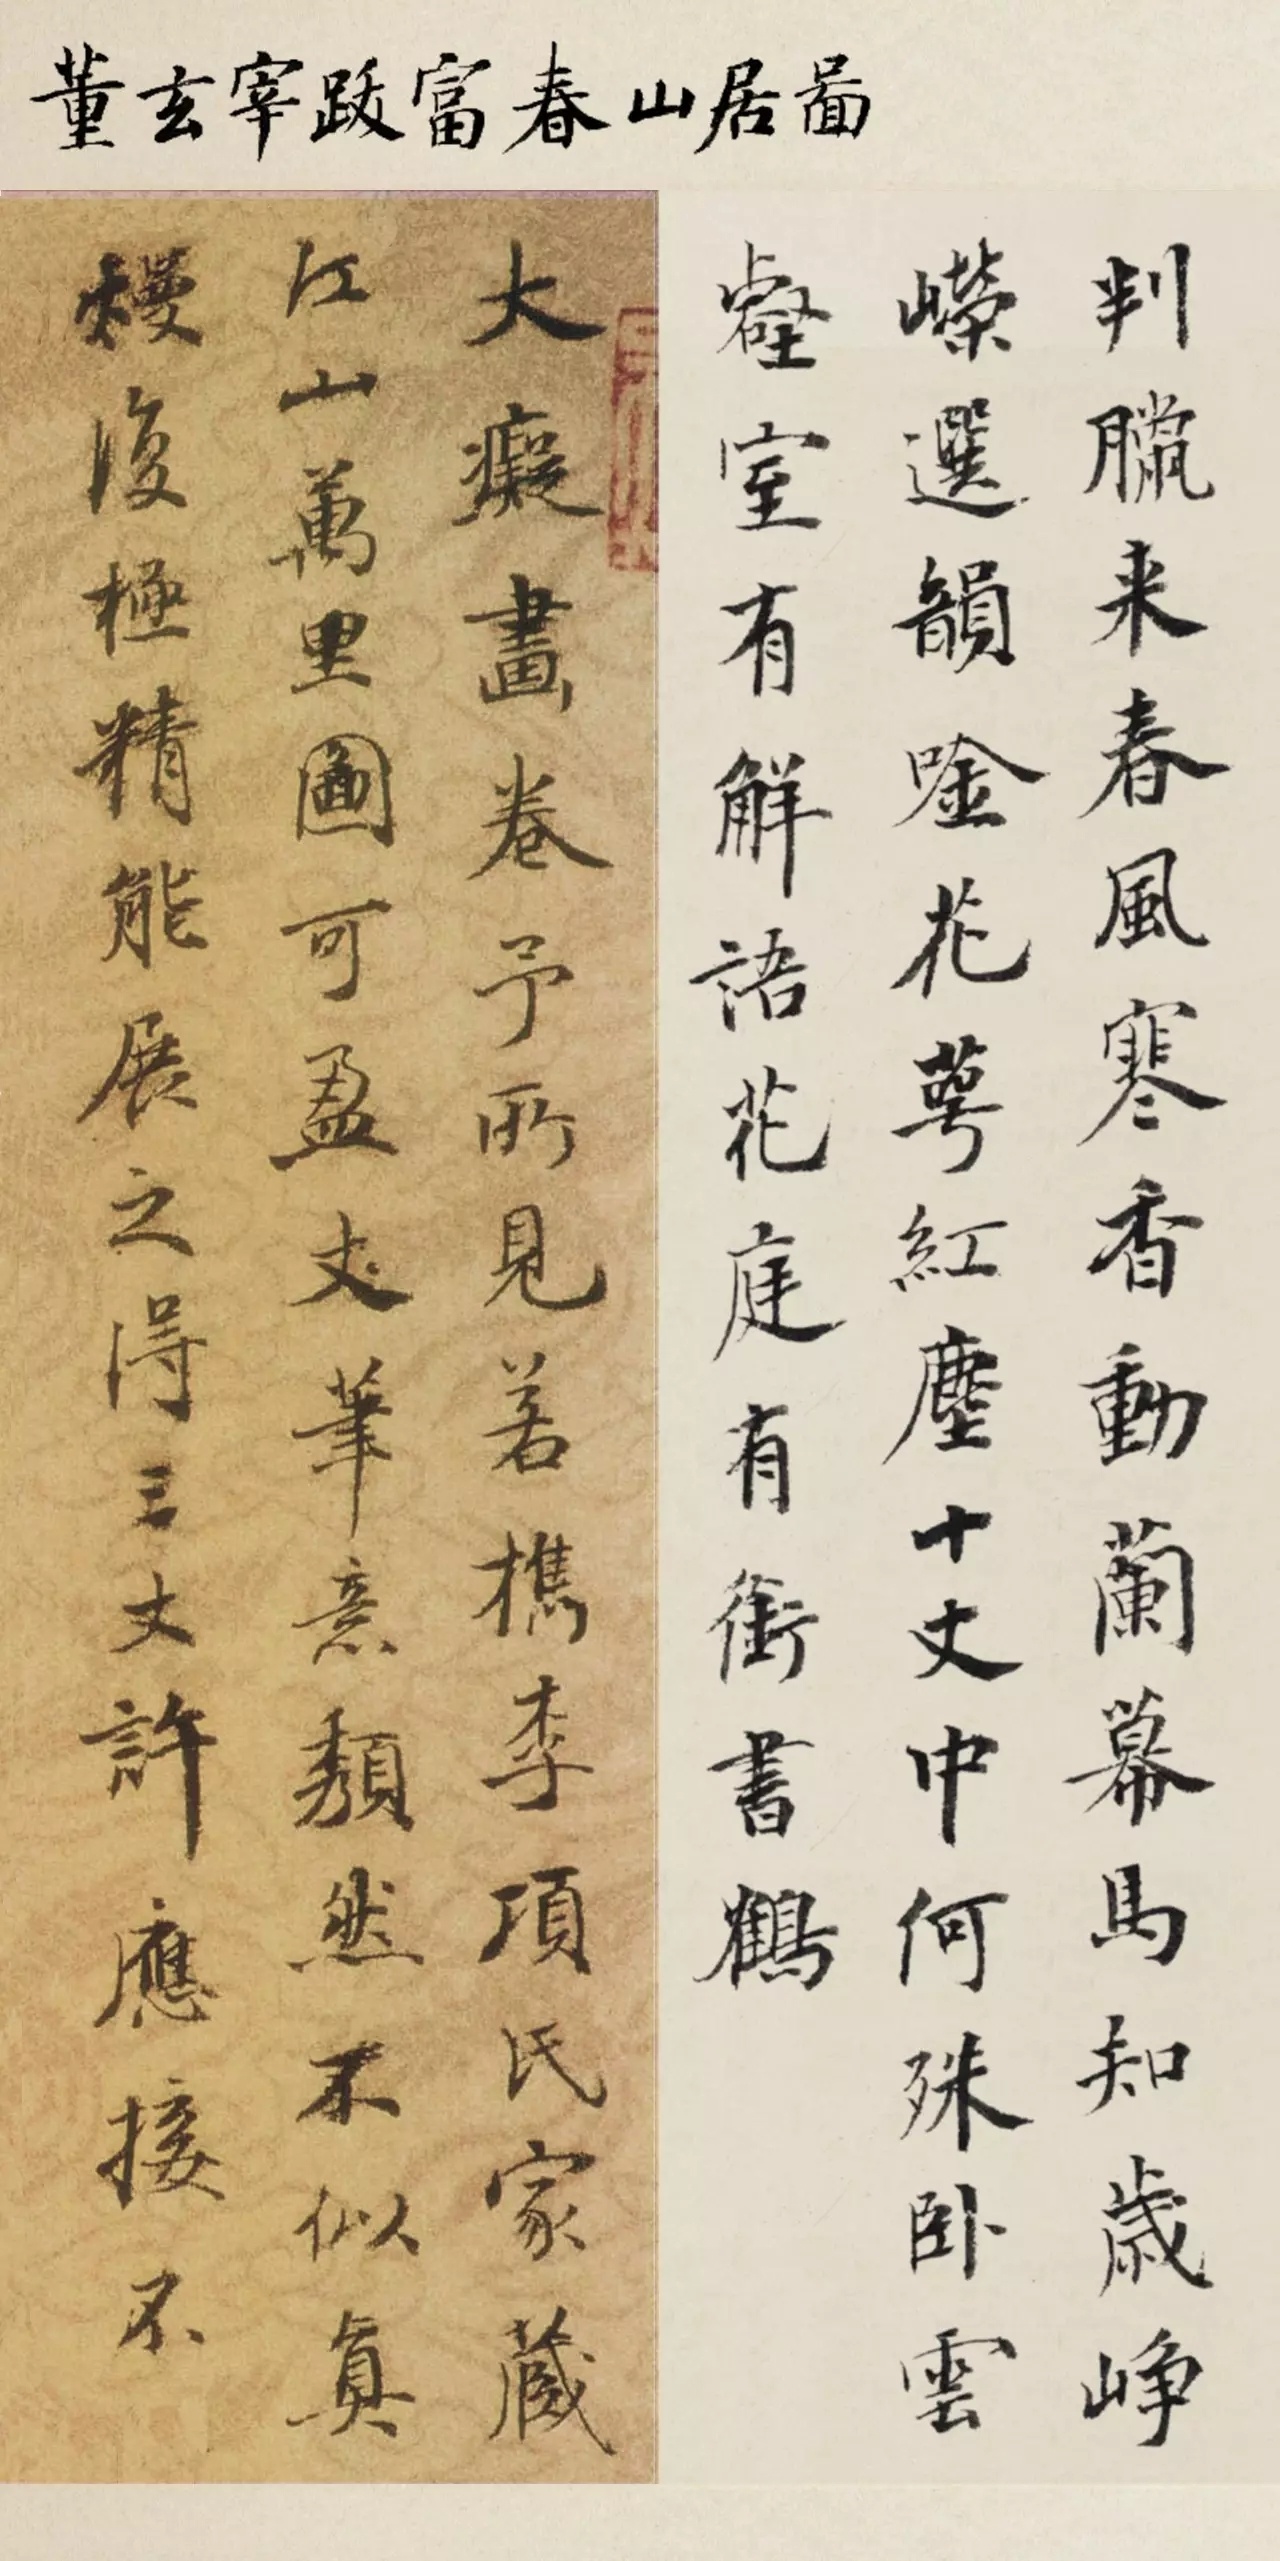 董玄宰跋富春山居啚
判臘来春風寒香動蘭幕馬知歲峥
嶸選韻唫花萼紅塵十丈中何殊卧雲
壑室有解語花庭有銜書鶴
大癡畫卷予所見若檇李項氏家藏
江山萬里圖可盈丈筆意頹然不似真
熳復極精能展之得三丈許應接不